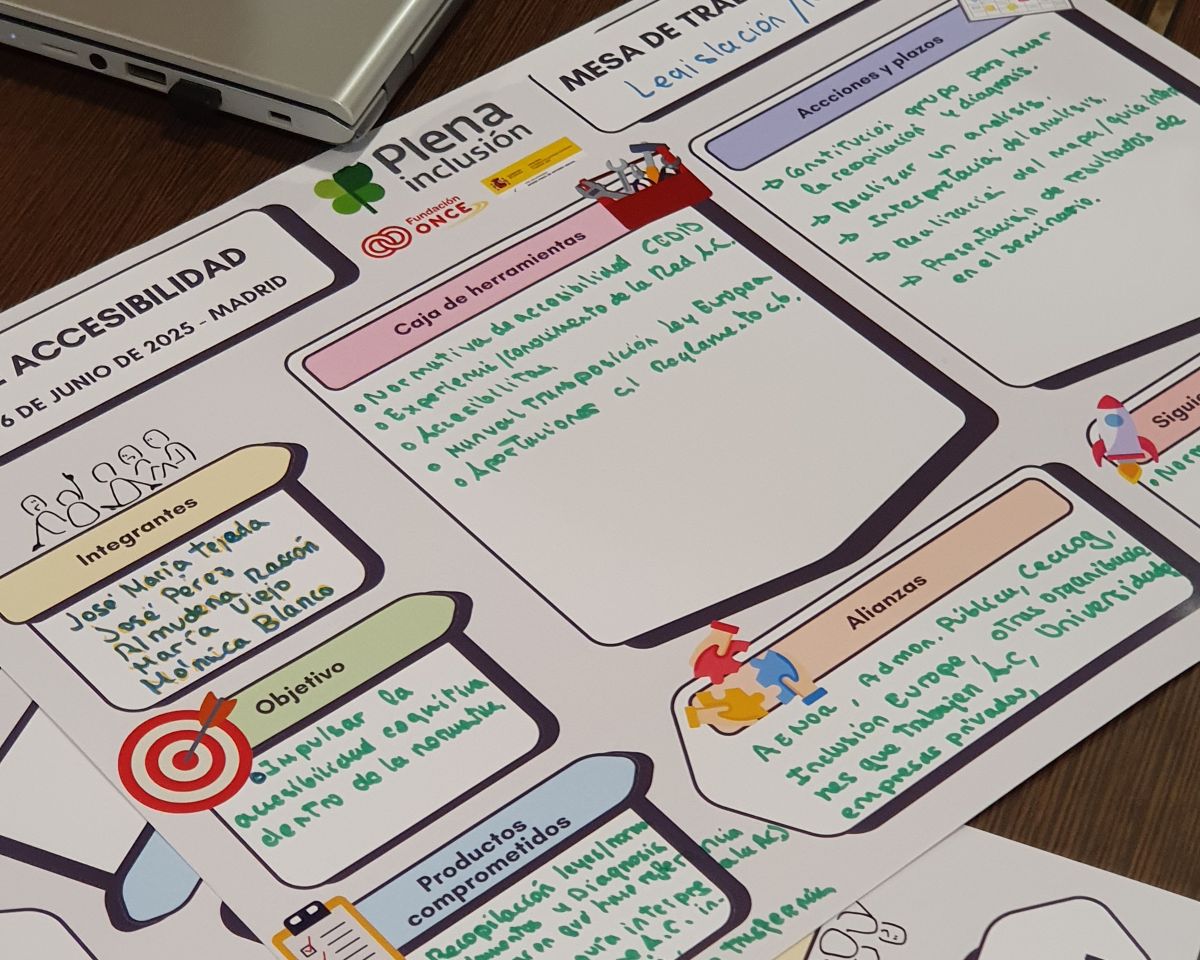 ACCESIBILIDAD
6 DE JUNIO DE 2025 - MADRID
Plena
inclusión
Fundación
ONCE
MESA DE TRA
Legislación /
Integrantes
José María Tejada
José Pérez
Almudena Rascón
María Viejo
Mónica Blanco
Objetivo
Impulsar la
accesibilidad cognitiva
dentro de la normativa
Productos
comprometidos
Recopilación leyes/norm
y Diagnosis
que hay referencia
a la AC)
guía interpre
A.C. in-
Caja de herramientas
Normativa de accesibilidad CEDID
Experiencia/conocimiento de la Red A.C.
Accesibilitas.
Manual Transposición ley Europea
Aportaciones al Reglamento
Accciones y plazos
Constitución grupo para hacer
la recopilación y diagnosis.
Realizar un análisis.
Interpretación del análisis.
Realización del mapa/guía
Presentación de resultados de
en el seminario.
Alianzas
AENOR, Admon. Pública, Cecucog,
Inclusión Europe, otras
nes que trabajen A.C, Universidades
empresas privadas,
Siguie